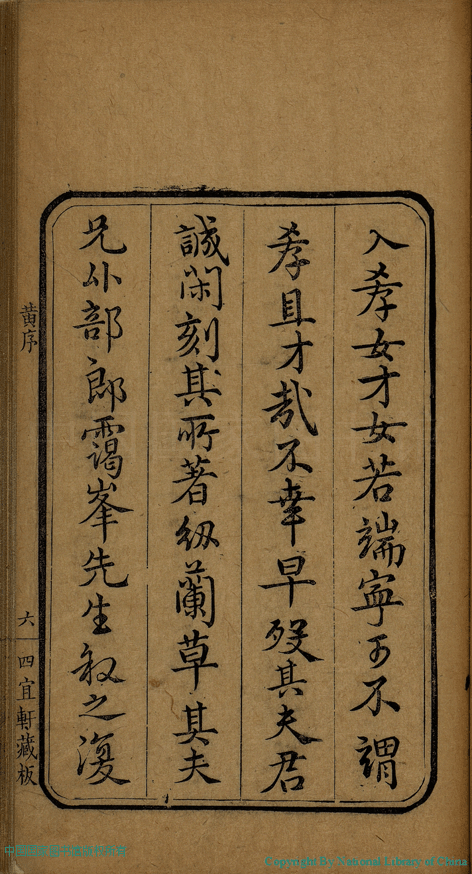 入孝女才女若端寧可不謂
孝且才哉不幸早歿其夫君
誠閑刻其所著紉蘭草其夫
兄比部郎靄峯先生敘之復
黃序
六
四宜軒藏板
Copyright by National Library of China